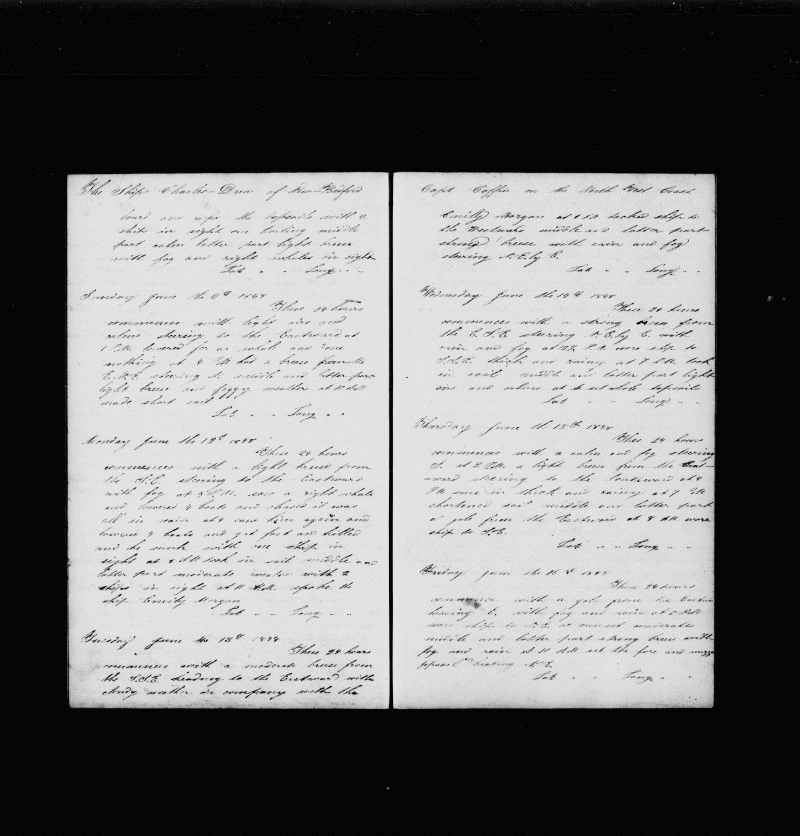 The Ship Charles Drew of New Bedford
board and reefs the topsails with 2
ships in sight one boiling middle
part calm latter part light breeze
with fog and right whales in sight
Lat " " Long " "
Sunday June the 11th 1848
These 24 hours
commences with light airs and
calms steering to the Eastward at
1 P.M. lowered for a whale and done
nothing at 4 P.M. had a breeze from the
steering N. middle and latter part
light breeze and foggy weather at
made short sail
Lat " " Long " "
Monday June the 12th 1848
These 24 hours
commences with a light breeze from
the S.E. steering to the Eastward
with fog at P.M. saw a right whale
and lowered 4 boats and chased it was
all in vain at 4 saw him again and
lowered 4 boats and got fast and killed
and he sunk with one ship in
sight at 8 P.M. took in sail middle and
latter part moderate weather with 2
ships in sight at 11 A.M. spoke the
ship Emily Morgan
Lat " " Long " "
Tuesday June the 13th 1848
These 24 hours
commences with a moderate breeze from
the S.S.E. heading to the Eastward with
cloudy weather in company with the
Capt Coffin on the North West Coast
Emily Morgan at tacked ship to
the Westward middle and latter part
strong breeze with rain and fog
steering N.E. by E.
Lat " " Long " "
Wednesday June the 14th 1848
These 24 hours
commences with a strong breeze from
the E.S.E. steering N.E. by E. with
rain and fog at P.M. wore ship to
S.S.E. thick and rainy at 7 P.M. took
in sail middle and latter part light
airs and calms at 6 set whole topsails
Lat " " Long " "
Thursday June the 15th 1848
These 24 hours
commences with a calm and fog steering
S. at 2 P.M. a light breeze from the East-
ward steering to the Southward at 4
P.M. came in thick and rainy at 7 P.M.
shortened sail middle and latter part
a gale from the Eastward at 8 A.M. wore
ship to
Lat " " Long " "
Friday June the 16th 1848
These 24 hours
commences with a gale from the Eastward
heading with fog and rain at 5 P.M.
wore ship to moderate
middle and latter part strong breeze with
fog and rain at 11 A.M. set the fore and mizzen
topsails heading N.E.
Lat " " Long " "